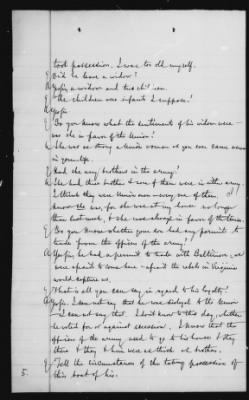 took possession. I was too old myself.
Q Did he leave a widow?
A Yessir, a widow and two children.
Q The children were infants I suppose?
A Yessir
Q Do you know what the sentiments of his widow were—
was she in favor of the Union?
A She was as strong a Union woman as you ever came across
in your life.
Q Had she any brothers in the army?
A She had three brothers & one of them were in either army.
I think they were Union men—every one of them.
know she was, for she was at my house no longer
than last week, & she was always in favor of the Union.
Q Do you know whether your son had any permit to
trade from the officers of the army?
A Yessir, he had a permit to trade with Baltimore; we
were afraid to come here—afraid the rebels in Virginia
would capture us.
Q What is all you can say in regard to his loyalty?
A Yessir. I can not say that he was disloyal to the Union
—I can not say that. I don't know to this day, whether
he voted for or against secession. I know that the
officers of the army used to go to his house & they
& they & him were as thick as brothers.
Q Tell the circumstances of the taking possession of
this boat of his.
5.